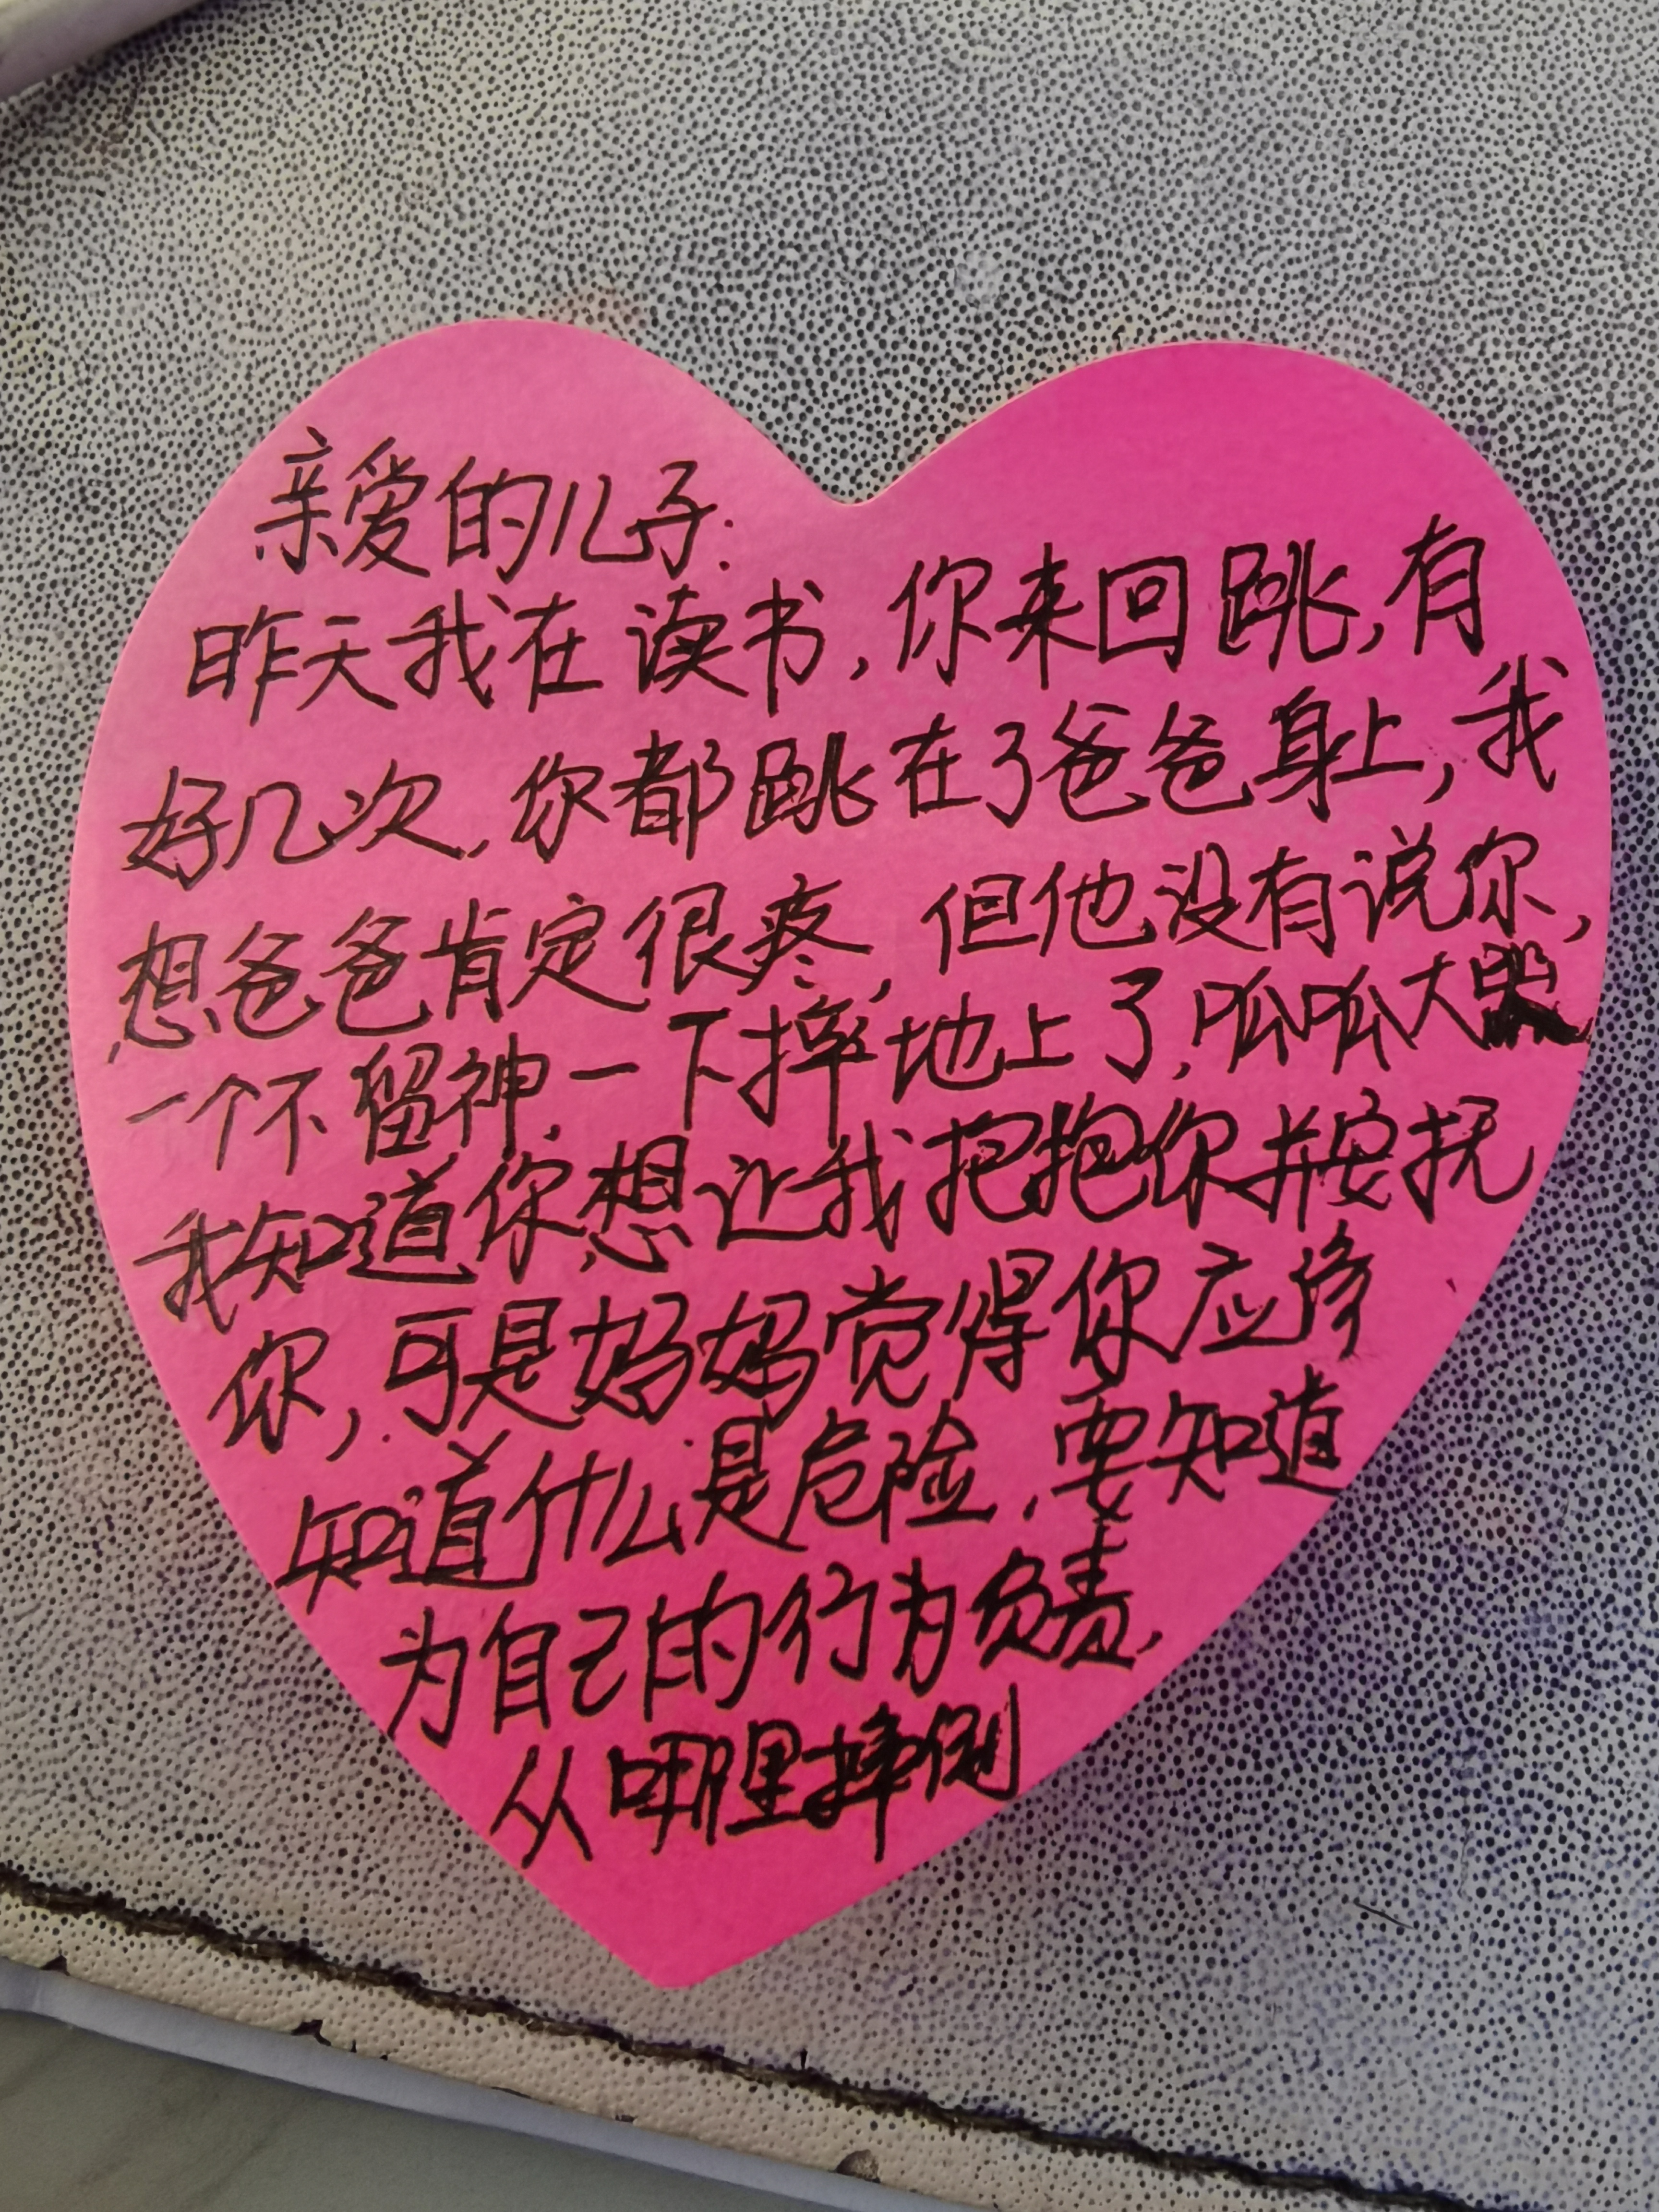 亲爱的儿子:
昨天我在读书,你来回跳,有
好几次,你都跳在了爸爸身上,我
想爸爸肯定很疼,但他没有说你,
一个不留神,一下摔地上了,呱呱大哭
我知道你想让我把抱你并安抚
你,可是妈妈觉得你应该
知道什么是危险,要知道
为自己的行为负责,
从哪里摔倒